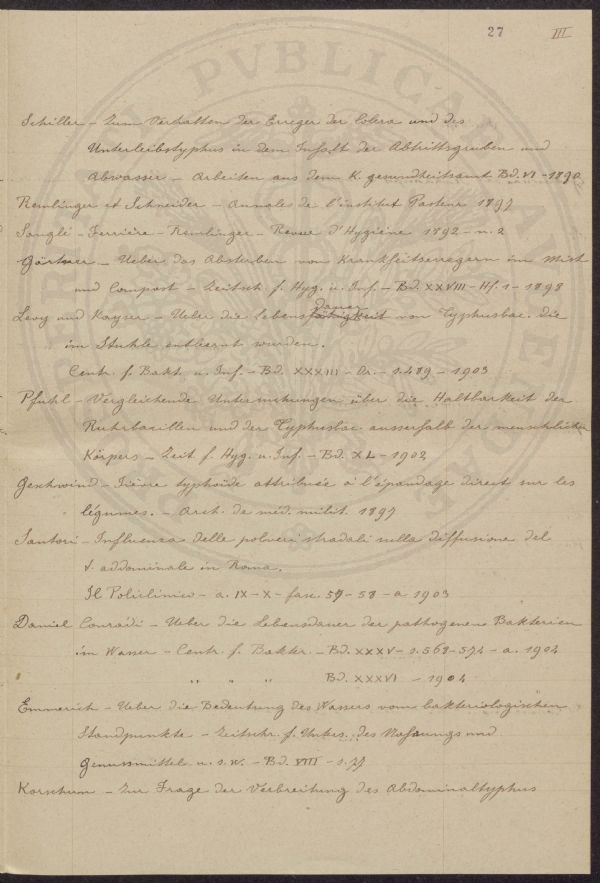 27 III
Schiller – Zum Verhalten der Erreger der Colera und des
Unterleibstyphus in dem Inhalt der Abtrittsgruben und
Abwasser – Arbeiten aus dem K. gesundheitsamt Bd. VI – 1890
Remlinger et Schneider – Annales de l'institut Pasteur 1897
Sanglé – Ferrière – Remlinger – Revue d'Hygiène 1892 – n. 2
Gärtner – Ueber das Absterben von Krankheitserregern im Mist
und Compost – Zeitsch. f. Hyg. u. Inf. – Bd. XXVIII – Hf. 1 – 1898
dauer
Levy und Kayser – Ueber die Lebensfähigkeit von Typhusbac. die
im Stuhle entleernt wurden.
Centr. f. Bakt. u. Inf. – Bd. XXXIII – Or. – s. 489 – 1903
Pfuhl – Vergleichende Untersuchungen über die Haltbarkeit der
Ruhrbacillen und der Typhusbac. ausserhalb der menschlichen
Körpers – Zeit f. Hyg. u. Inf. – Bd. XL – 1902
Geschwind – Fièvre typhoïde attribuée à l'épandage direct sur les
légumes. – Arch. de méd. milit. 1897
Santori – Influenza delle polveri stradali sulla diffusione del
t. addominale in Roma.
Il Policlinico – a. IX – X – fasc. 57 – 58 – a 1903
Daniel Conradi – Ueber die Lebensdauer der pathogenen Bakterien
im Wasser – Centr. f. Bakter. – Bd. XXXV – s. 568 – 574 – a. 1904
" " " Bd. XXXVI – 1904
Emmerich – Ueber die Bedeutung des Wassers vom bakteriologischen
Standpunkte – Zeitschr. f. Unters. des Nahrungs und
Genussmittel u. s. w. – Bd. VIII – s. 77
Korschun – Zur Frage der Verbreitung des Abdominaltyphus